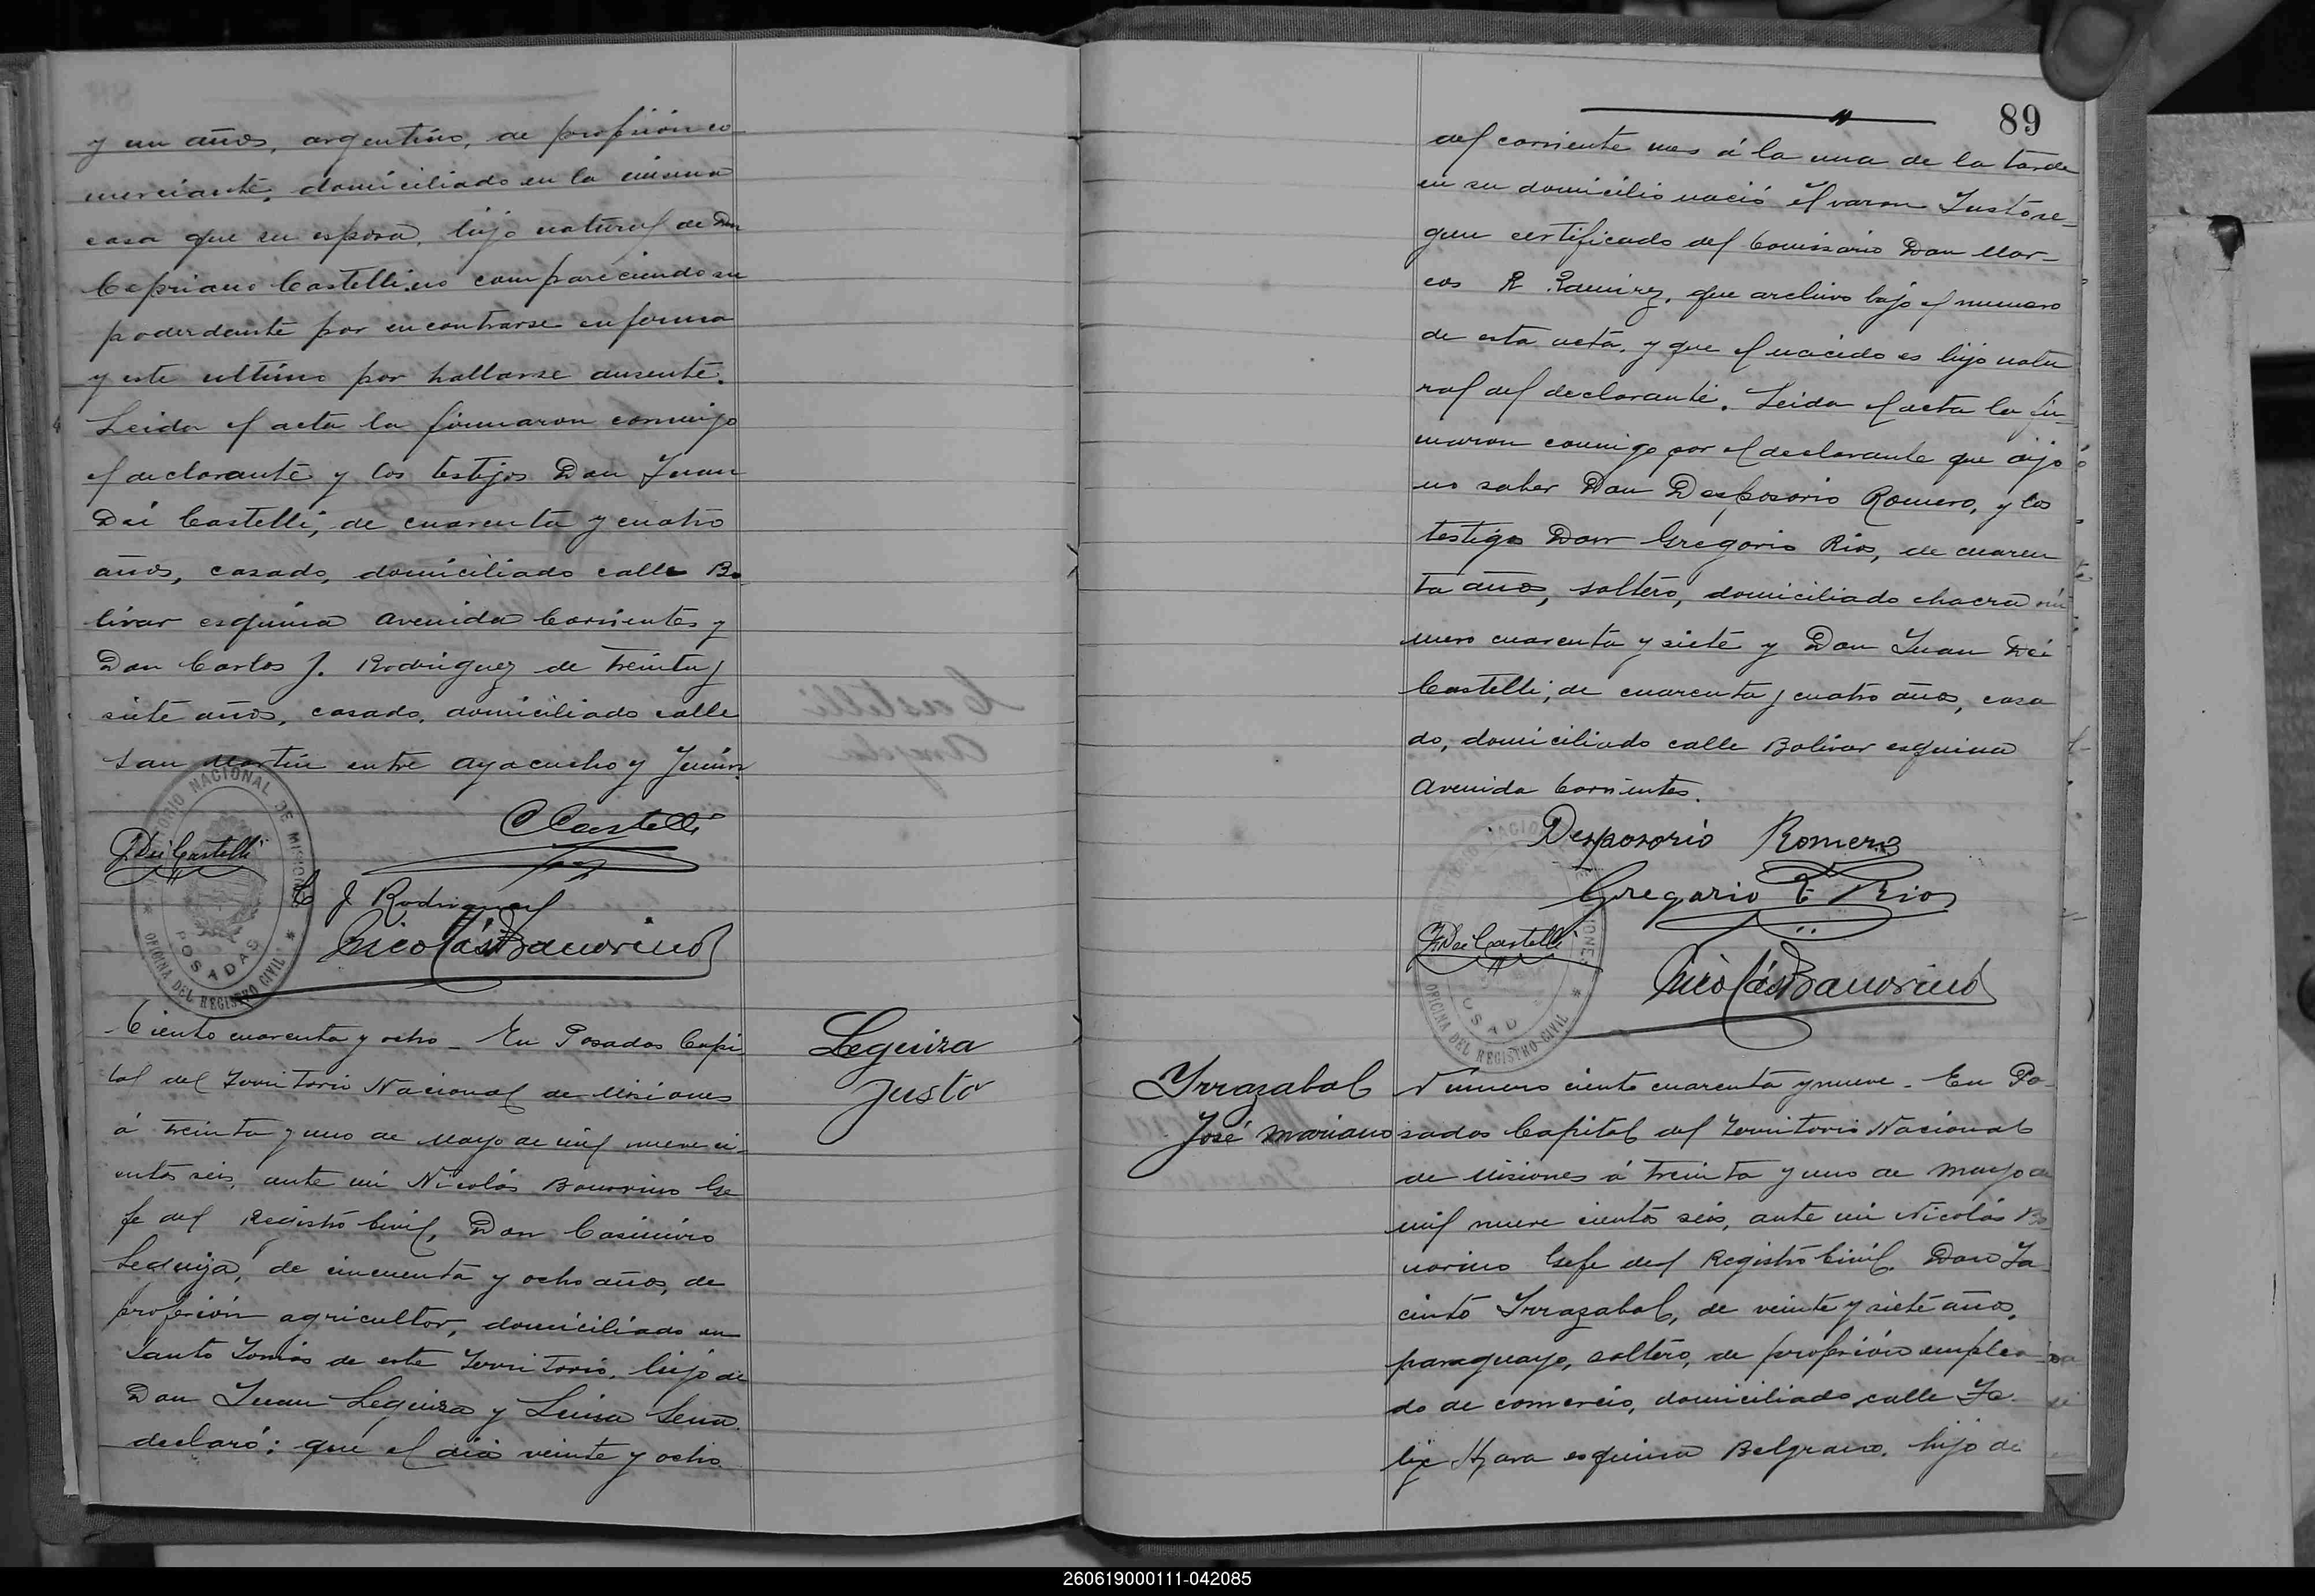 y un años, argentino, de profesión co-
merciante, domiciliado en la misma
casa que su esposa, hijo natural de Don
Cipriano Castelli, no compareciendo su
poderdante por encontrarse enferma
y este ultimo por hallarse ausente.
Leida el acta la firmaron conmigo
el declarante y los testigos Don Juan
Dei Castelli, de cuarenta y cuatro
años, casado, domiciliado calle Bo-
livar esquina Avenida Corrientes y
Don Carlos J. Rodriguez de treinta y
siete años, casado, domiciliado calle
San Martin entre Ayacucho y Junin.
C Castelli
J. Dei Castelli
C J Rodriguez
Nicolás Bonorino
TERRITORIO NACIONAL DE MISIONES
POSADAS
OFICINA DEL REGISTRO CIVIL
Leguiza
Justo
Ciento cuarenta y ocho - En Posadas Capi
tal del Territorio Nacional de Misiones
á treinta y uno de Mayo de mil novecí-
entos seis, ante mi Nicolás Bonorino Ge
fe del Registro Civil, Don Casimiro
Leguiza, de cincuenta y ocho años, de
profesión agricultor, domiciliado en
Santo Tomás de este Territorio, hijo de
Don Juan Leguiza y Luisa
declaró: que el dia veinte y ocho
89
del corriente mes á la una de la tarde
en su domicilio nació el varon Justo se-
gun certificado del Comisario Don Mar-
cos R Ramirez, que archivo bajo el numero
de esta acta, y que el nacido es hijo natu
ral del declarante. Leida el acta la fir-
maron conmigo por el declarante que dijo
no saber Don Desposorio Romero, y los
testigos Don Gregorio Rios, de cuaren
ta años, soltero, domiciliado chacra nú
mero cuarenta y siete y Don Juan Dei
Castelli, de cuarenta y cuatro años, casa
do, domiciliado calle Bolivar esquina
Avenida Corrientes.
Desposorio Romero
Gregorio T Rios
J. Dei Castelli
Nicolás Bonorino
OFICINA DEL REGISTRO CIVIL
Yrrazabal
José Mariano
Número ciento cuarenta y nueve - En Po-
sadas Capital del Territorio Nacional
de Misiones á treinta y uno de Mayo de
mil nueve cientos seis, ante mi Nicolás Bo
norino Gefe del Registro Civil, Don Ja
cinto Yrrazabal, de veinte y siete años,
paraguayo, soltero, de profesión emplea
do de comercio, domiciliado calle Fe-
lix Azara esquina Belgrano, hijo de
260619000111-042085